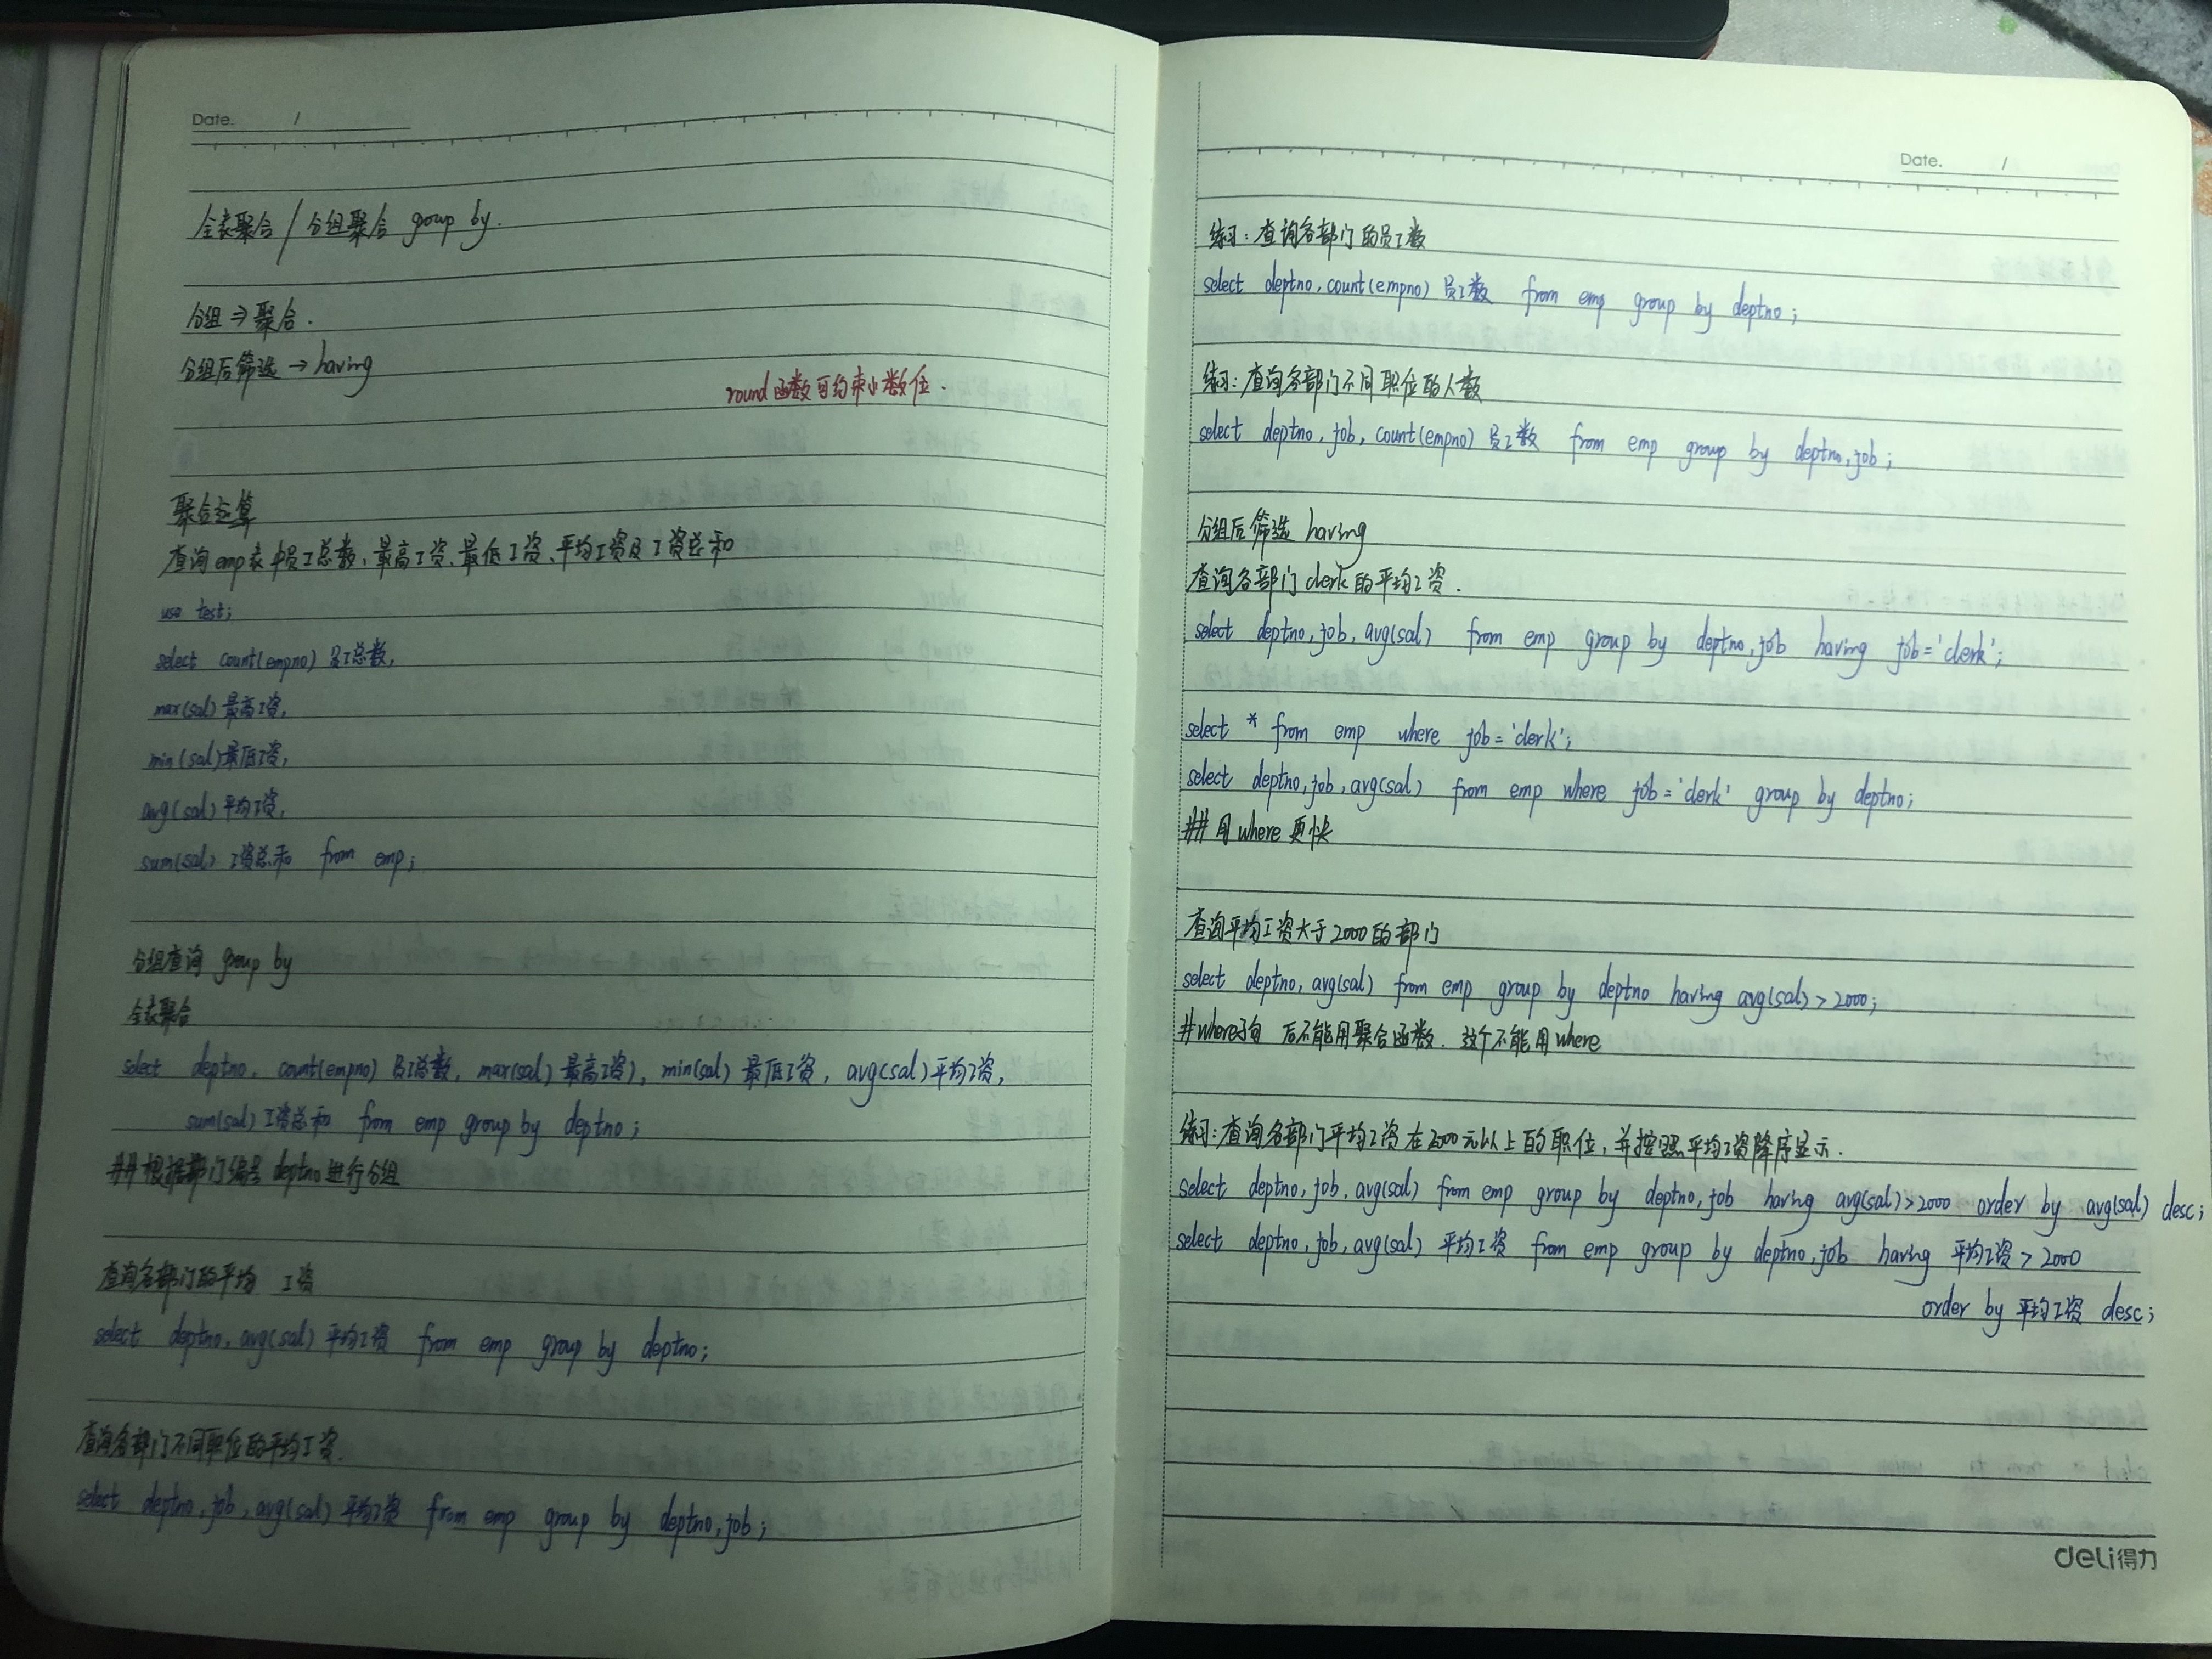 Date. /
全表聚合 / 分组聚合 group by.
分组 ⇒ 聚合.
分组后筛选 → having
round函数可约束小数位.
聚合运算
查询emp表中员工总数、最高工资、最低工资、平均工资及工资总和
use test;
select count(empno) 员工总数,
max(sal) 最高工资,
min(sal) 最低工资,
avg(sal) 平均工资,
sum(sal) 工资总和 from emp;
分组查询 group by
全表聚合
select deptno, count(empno) 员工总数, max(sal) 最高工资), min(sal) 最低工资, avg(sal) 平均工资,
sum(sal) 工资总和 from emp group by deptno;
## 根据部门编号 deptno进行分组
查询各部门的平均 工资
select deptno, avg(sal) 平均工资 from emp group by deptno;
查询各部门不同职位的平均工资.
select deptno, job, avg(sal) 平均工资 from emp group by deptno, job;
Date. /
练习: 查询各部门的员工数
select deptno, count(empno) 员工数 from emp group by deptno;
练习: 查询各部门不同职位的人数
select deptno, job, count(empno) 员工数 from emp group by deptno, job;
分组后筛选 having
查询各部门 clerk的平均工资.
select deptno, job, avg(sal) from emp group by deptno, job having job='clerk';
select * from emp where job='clerk';
select deptno, job, avg(sal) from emp where job='clerk' group by deptno;
## 用where更快
查询平均工资大于2000的部门
select deptno, avg(sal) from emp group by deptno having avg(sal)>2000;
# where子句 后不能用聚合函数. 这个不能用where
练习: 查询各部门平均工资在2000元以上的职位, 并按照平均工资降序显示.
select deptno, job, avg(sal) from emp group by deptno, job having avg(sal)>2000 order by avg(sal) desc;
select deptno, job, avg(sal) 平均工资 from emp group by deptno, job having 平均工资>2000
order by 平均工资 desc;
deli得力